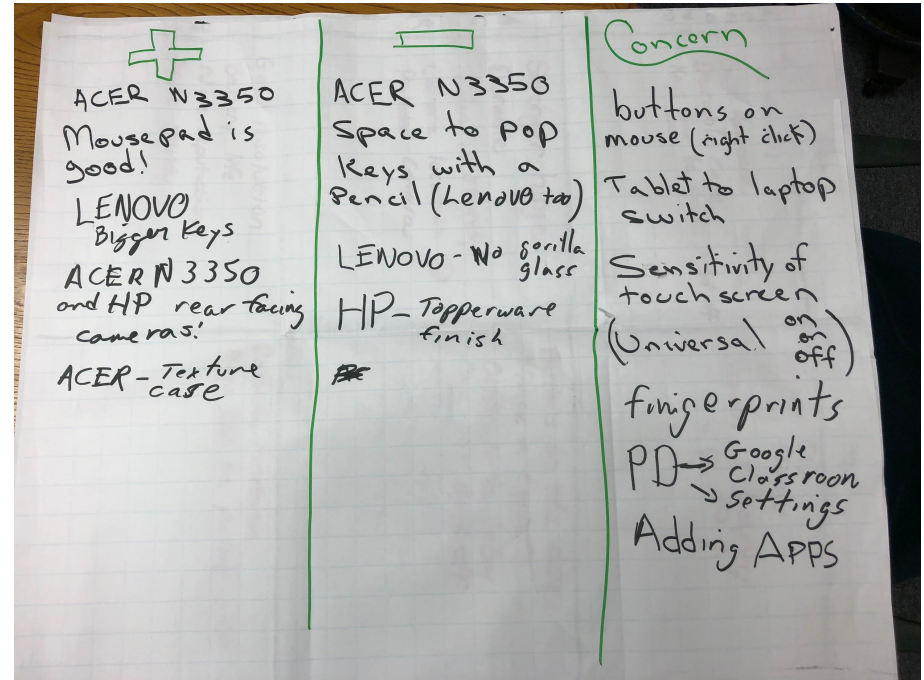 ACER N3350
Mousepad is
good!
LENOVO
Bigger Keys
ACER N3350
and HP rear facing
cameras!
ACER - Texture
case
ACER N3350
Space to pop
Keys with a
Pencil (Lenovo too)
LENOVO - No gorilla
glass
HP - Topperware
finish
Concern
buttons on
mouse (right click)
Tablet to laptop
switch
Sensitivity of
touch screen
(Universal on
on
off)
fingerprints
PD → Google
Classroon
→ Settings
Adding APPS